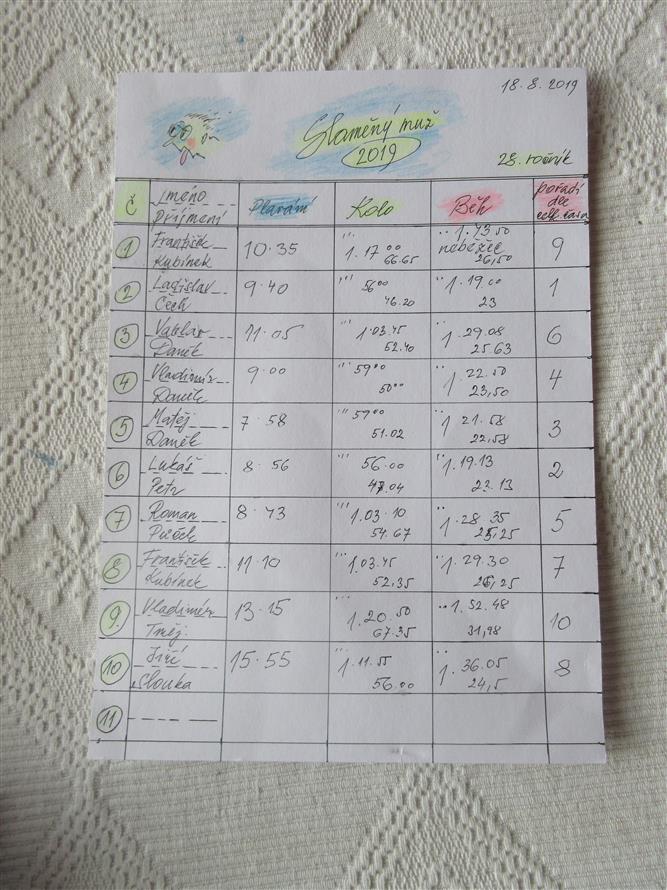 18.8.2019
Slaměný muž
2019
28. ročník
Č Jméno Příjmení Plavání Kolo Běh pořadí dle celk. času
1 František Kubínek 10.35 1.17 00 66.65 1.43,50 neběžel 26,50 9
2 Ladislav Čech 9.40 56 00 46.20 1.19.00 23 1
3 Václav Daněk 11.05 1.03.45 52.40 1.29.08 25.63 6
4 Vladimír Daněk 9.00 59 00 50 00 1.22.50 23,50 4
5 Matěj Daněk 7.58 59 00 51.02 1 21.58 22,58 3
6 Lukáš Petr 8.56 56.00 47.04 1.19.13 23.13 2
7 Roman 8.43 1.03.10 54.67 1.28 35 25,25 5
8 František Kubínek 11.10 1.03.45 52,35 1.29.30 7
9. Vladimír 13.15 1.20.50 67.35 1.52.48 31,98 10
10 Jiří Slouka 15.55 1.11.55 56.00 1.36.05 24,5 8
11